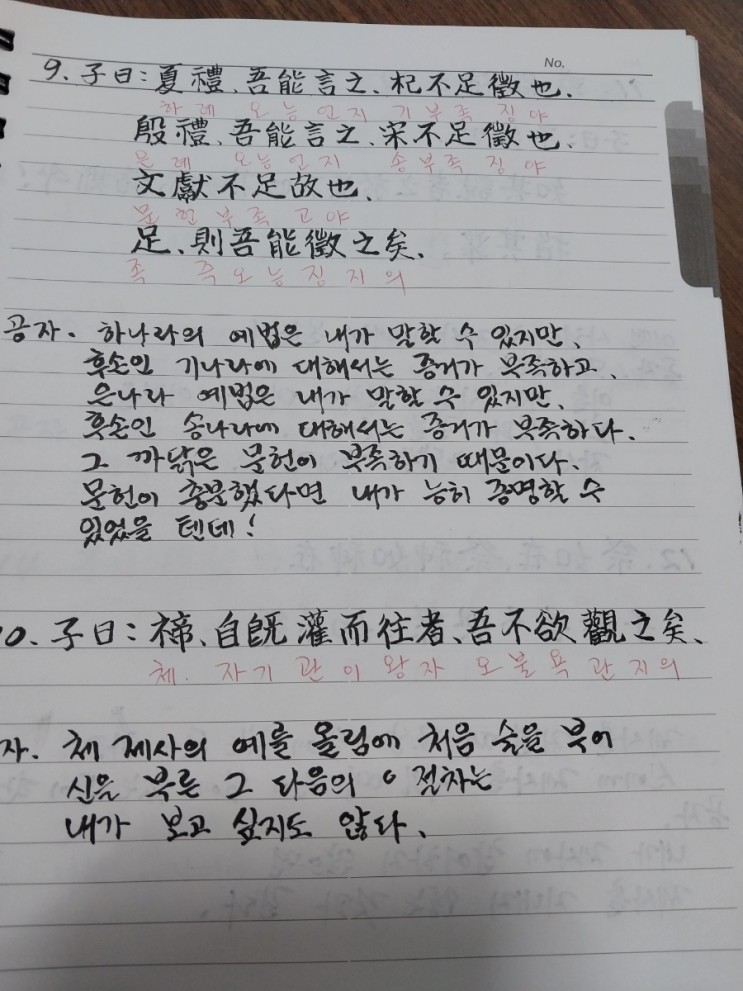 No.
9. 子曰：夏禮、吾能言之、杞不足徵也.
하례 오능언지 기부족 징야
殷禮、吾能言之、宋不足徵也.
은례 오능언지 송부족 징야
文獻不足故也.
문헌부족 고야
足、則吾能徵之矣.
족 즉오능징지의
공자. 하나라의 예법은 내가 말할 수 있지만,
후손인 기나라에 대해서는 증거가 부족하고,
은나라 예법은 내가 말할 수 있지만,
후손인 송나라에 대해서는 증거가 부족하다.
그 까닭은 문헌이 부족하기 때문이다.
문헌이 충분했다면 내가 능히 증명할 수
있었을 텐데!
0. 子曰：禘、自旣灌而往者、吾不欲觀之矣、
체. 자기관이왕자 오불욕관지의
자. 체 제사의 예를 올림에 처음 술을 부어
신을 부른 그 다음의 절차는
내가 보고 싶지도 않다.